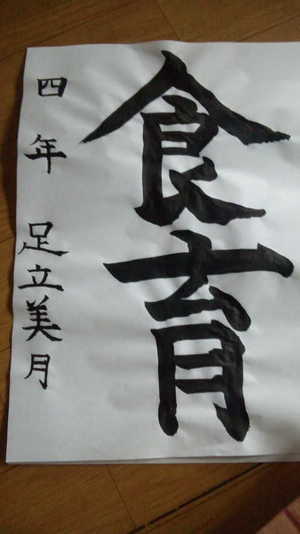 食育
四年 足立美月